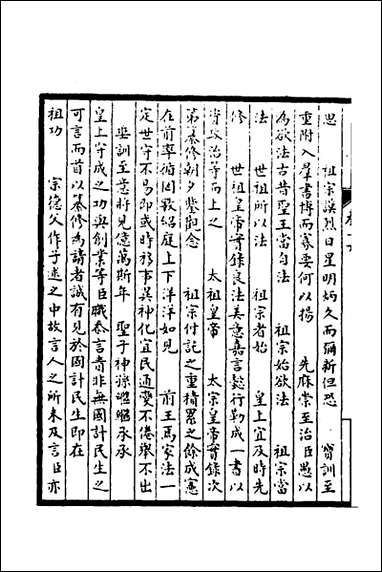 思　祖宗謨烈日星明炳久而彌新但恐　寶訓至
重附入羣書博而寡要何以揚　先麻崇至治臣愚以
為欲法古昔聖王當自法　祖宗始欲法　祖宗當
法　世祖所以法　祖宗者始　皇上宜及時先
修　世祖皇帝實錄良法美意嘉言懿行勒成一書以
資政治等而上之　太祖皇帝　太宗皇帝實錄次
第纂修朝夕鑒觀念　祖宗付託之重積累之餘成憲
在前率循罔斁紹庭上下洋洋如見　前王馬家法一
定世守不易即或時移事異神化宜民通變不倦舉不出
壐訓至意將見億萬斯年　聖子神孫繼繼承承
皇上守成之功與創業等臣職忝言責非無國計民生之
可言而首以纂修為請者誠有見於國計民生即在
祖功　宗德父作子述之中故言人之所未及言臣亦